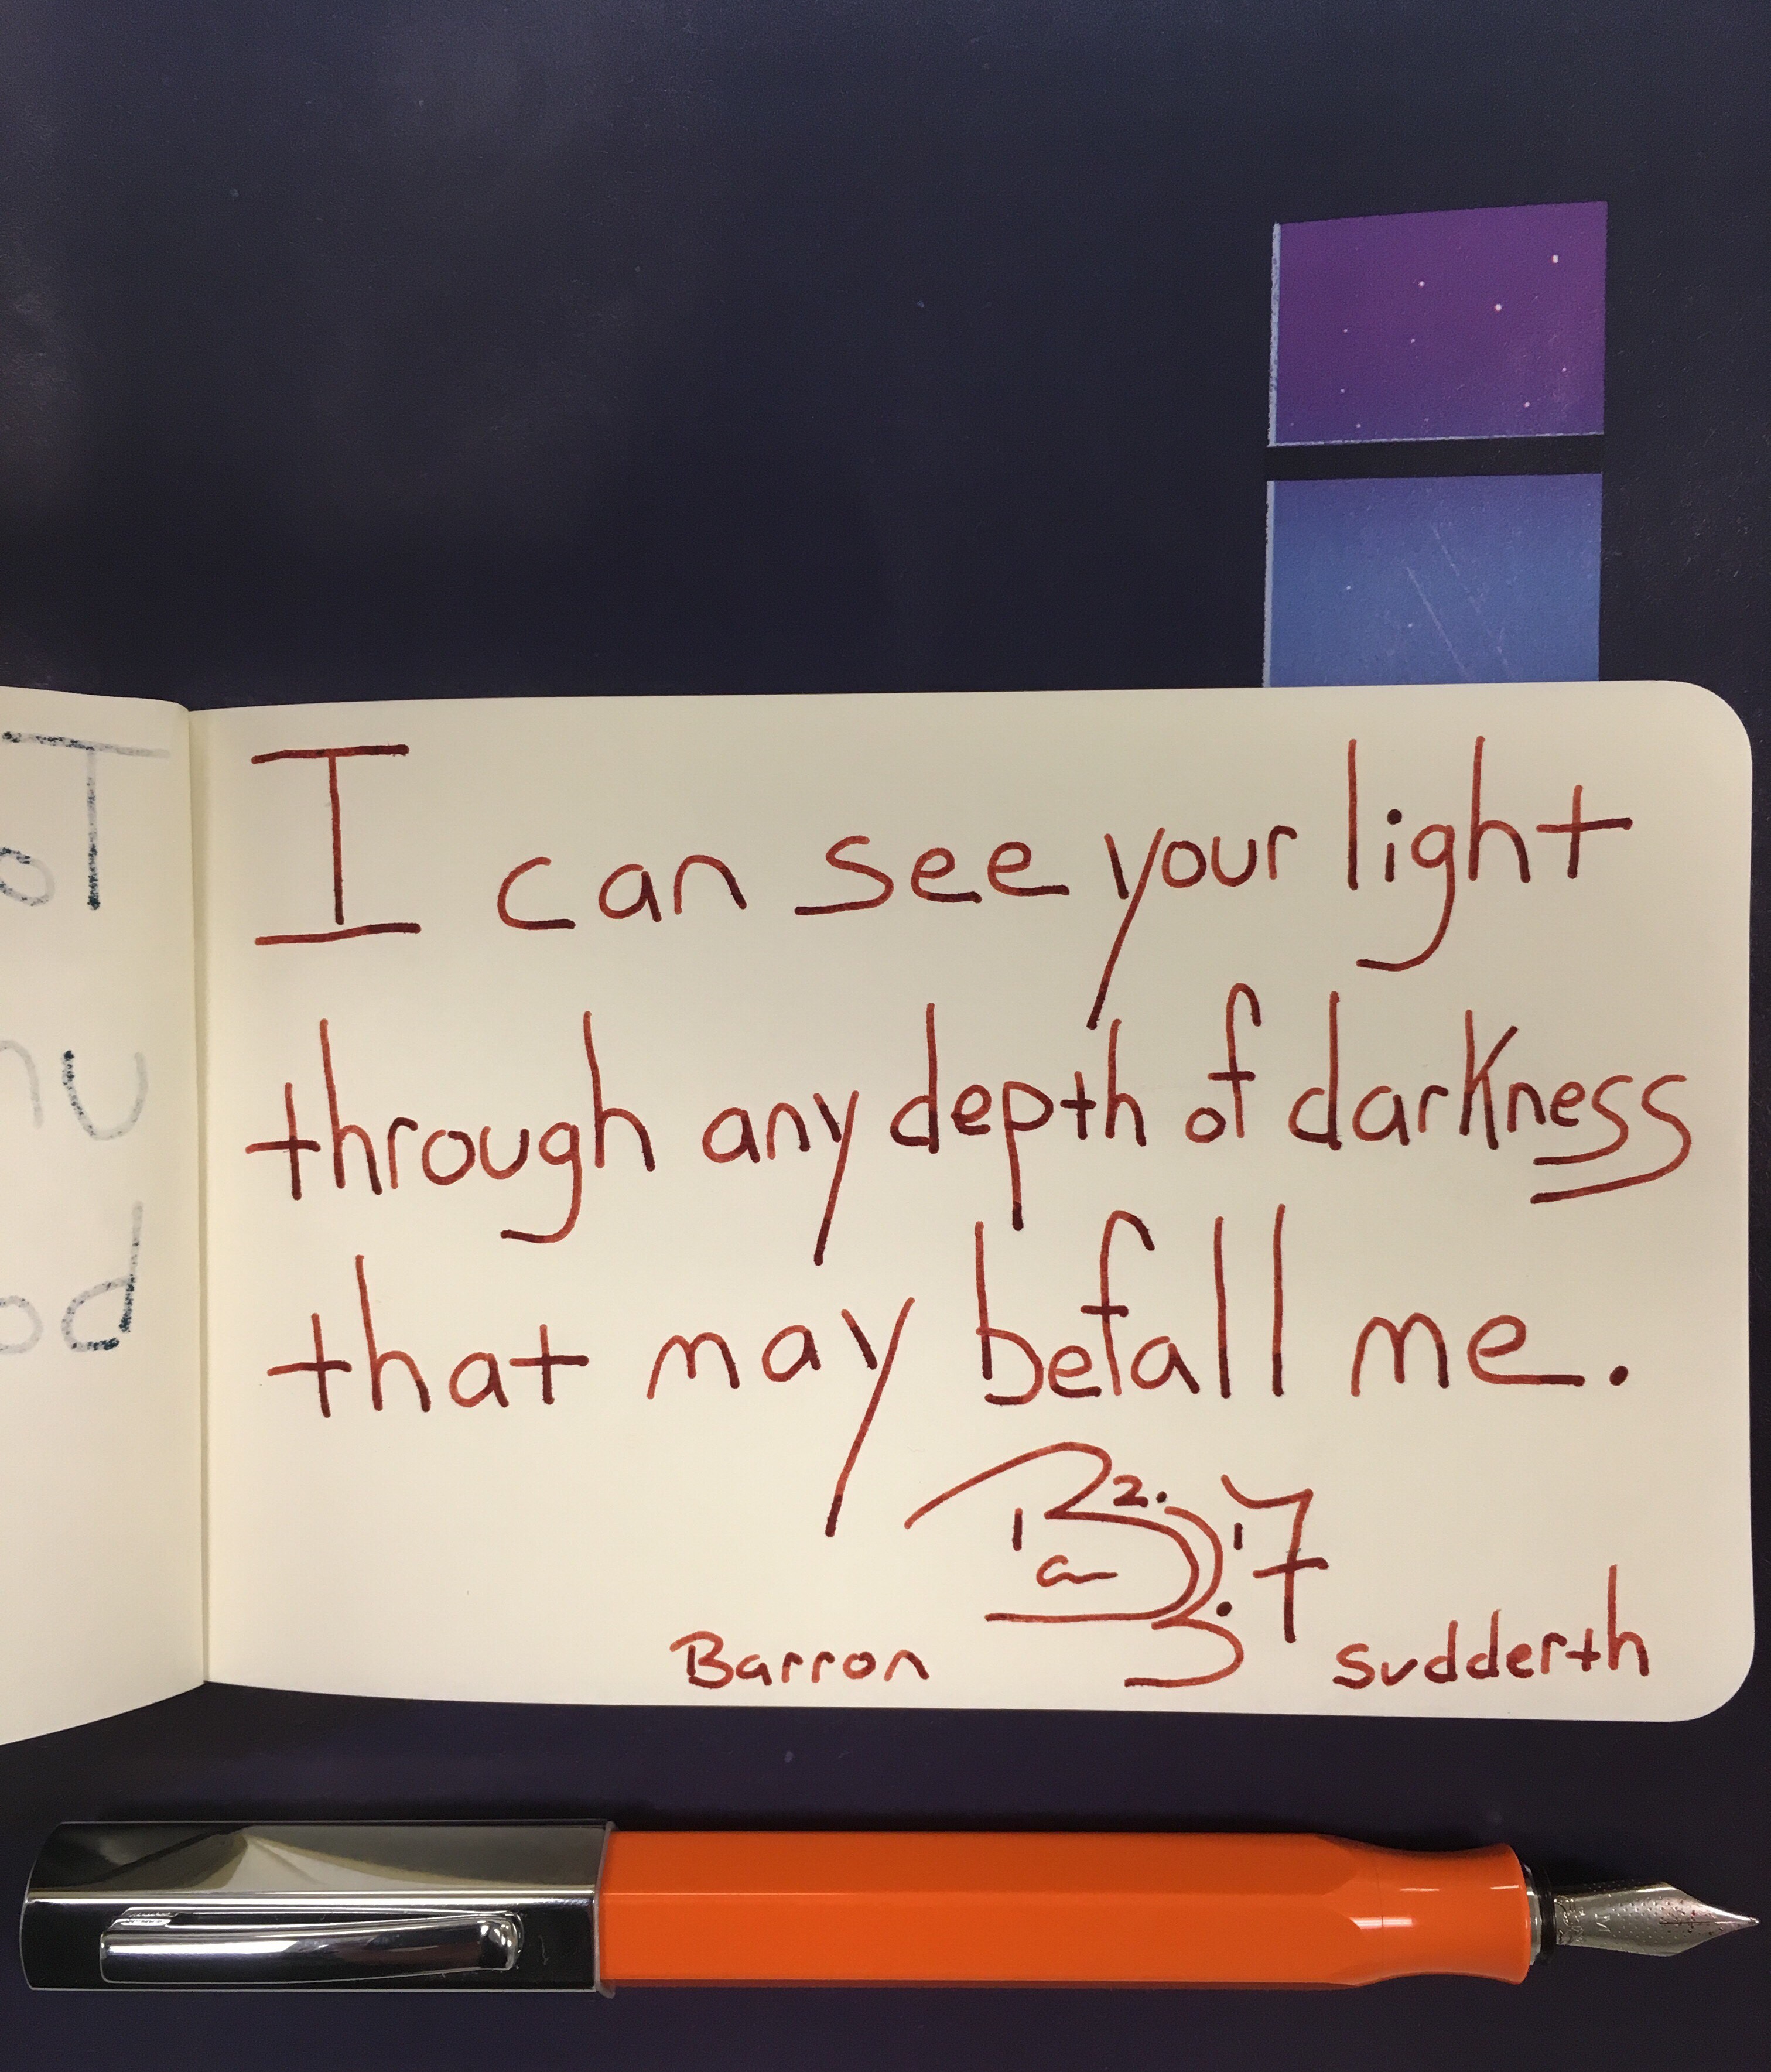 I can see your light
through any depth of darkness
that may befall me.
Barron Sudderth